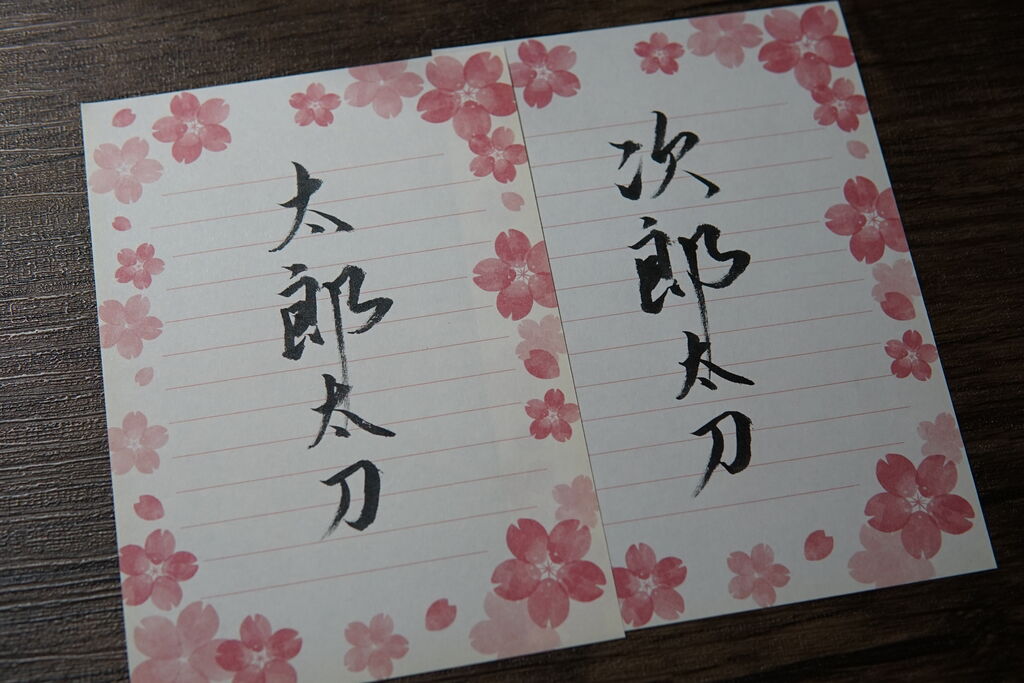 太郎太刀
次郎太刀